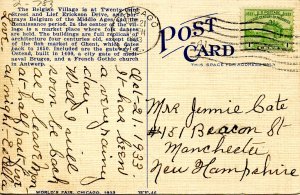 The Belgian Village is at Twenty-third
Street and Lief Erickson Drive, and por-
trays Belgium of the Middle Ages and the
Renaissance period. In the center of the vil-
lage is a market place where folk dances
are held. The buildings are full copies of
architecture four centuries old, except that
of the fish market of Ghent, which dates
back to 1610. Included are the gateway of
Ostend, built in 1400, a city gate of medi-
aeval Bruges, and a French Gothic church
in Antwerp.
CHICAGO
POST
CARD
THIS SPACE FOR ADDRESS ONLY
Oct-21. 1933
It has been
a very rainy
day.
Well I will
soon be back
are leaving
at
midnight
Mrs Jennie Cate
#451 Beacon St
Manchester
New Hampshire
WORLD'S FAIR, CHICAGO, 1933